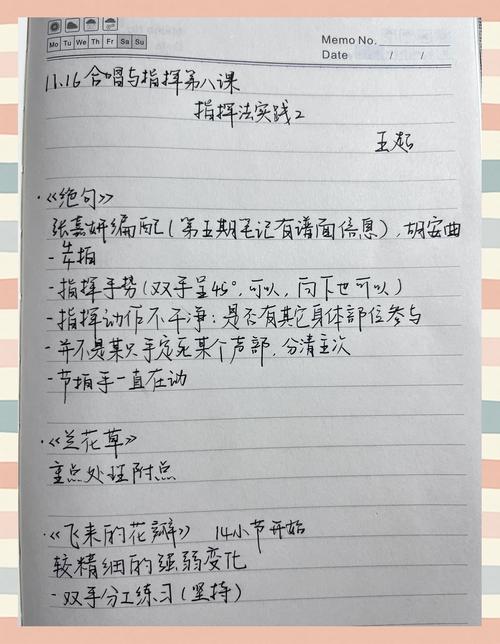 Mo Tu We Th Fr Sa Su
Memo No.
Date / /
11.16 合唱与指挥第八课
指挥法实践2
王超
·《绝句》
张嘉妍编配(第五期笔记有谱面信息),胡安曲
- 单拍
- 指挥手势(双手呈45°,可以,向下也可以)
- 指挥动作不干净:是否有其它身体部位参与
- 并不是某只手定死某个声部,分清主次
- 节拍手一直在动
·《兰花草》
重点处理附点
·《飞来的花瓣》 14小节开始
较精细的强弱变化
- 双手分工练习(坚持)